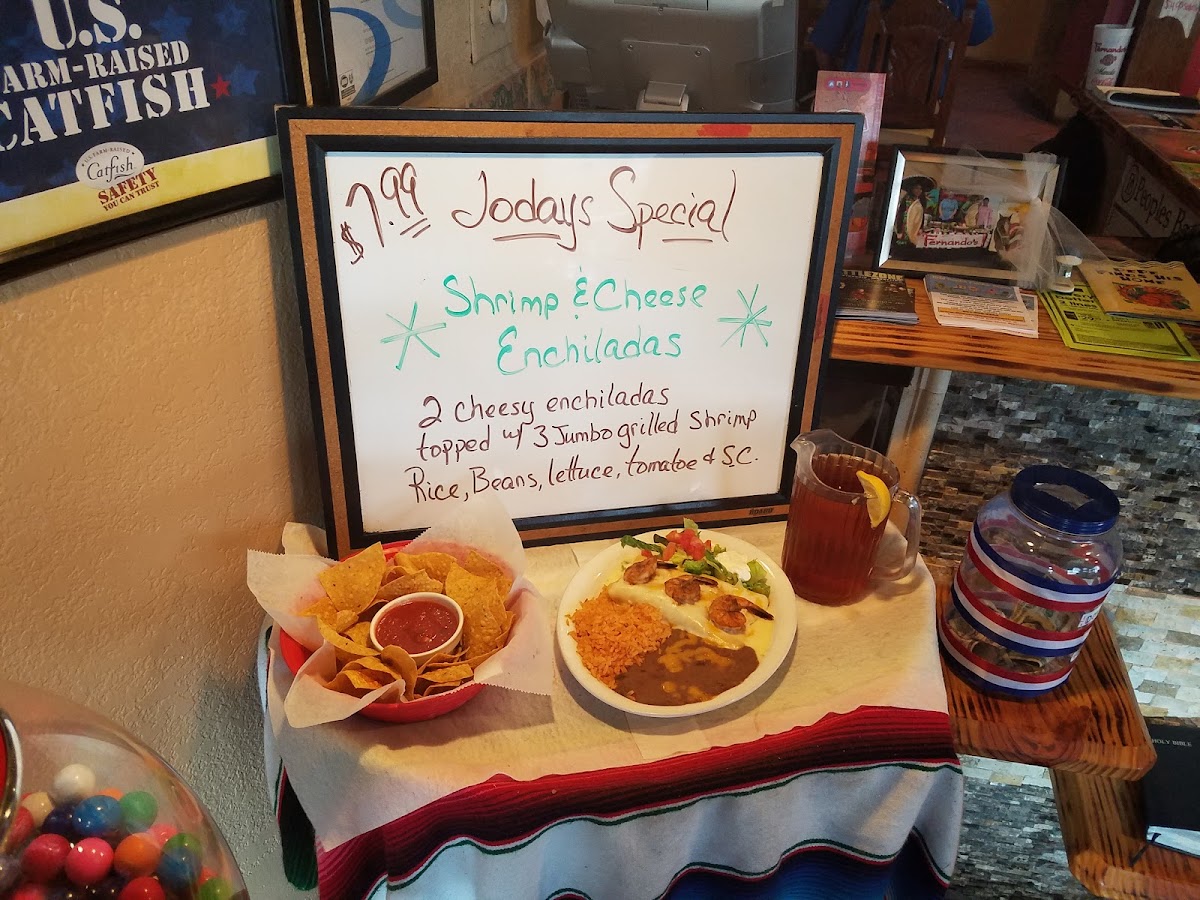 U.S.
FARM-RAISED
CATFISH
U.S. FARM-RAISED
Catfish
SAFETY
YOU CAN TRUST
$7.99 Todays Special
Shrimp & Cheese
Enchiladas
2 cheesy enchiladas
topped w/ 3 Jumbo grilled Shrimp
Rice, Beans, lettuce, tomatoe & S.C.
Fernando's
Fernando's
Peoples Ba
HOLY BIBLE